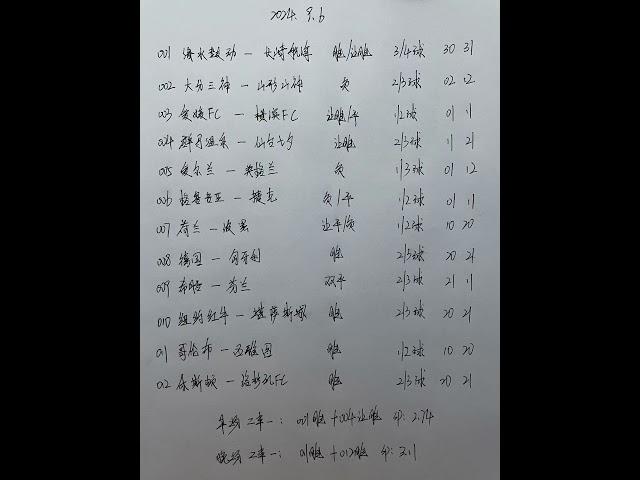 2024. 9. 6
001 清水鼓动 — 长崎航海 胜/让胜 3/4球 30 31
002 大分三神 — 山形山神 负 2/3球 02 12
003 爱媛FC — 横滨FC 让胜/平 1/2球 01 11
004 群马温泉 — 仙台七夕 让胜 2/3球 11 21
005 爱尔兰 — 英格兰 负 1/3球 01 12
006 格鲁吉亚 — 捷克 负/平 1/2球 01 11
007 荷兰 — 波黑 让平/负 1/2球 10 20
008 德国 — 匈牙利 胜 2/3球 20 21
009 希腊 — 芬兰 双平 2/3球 21 11
010 纽约红牛 — 堪萨斯 胜 2/3球 20 21
011 哥伦布 — 西雅图 胜 1/2球 10 20
012 休斯顿 — 洛杉矶FC 胜 2/3球 20 21
早场二串一: 001胜 + 004让胜 SP: 2.74
晚场二串一: 011胜 + 012胜 SP: 3.1